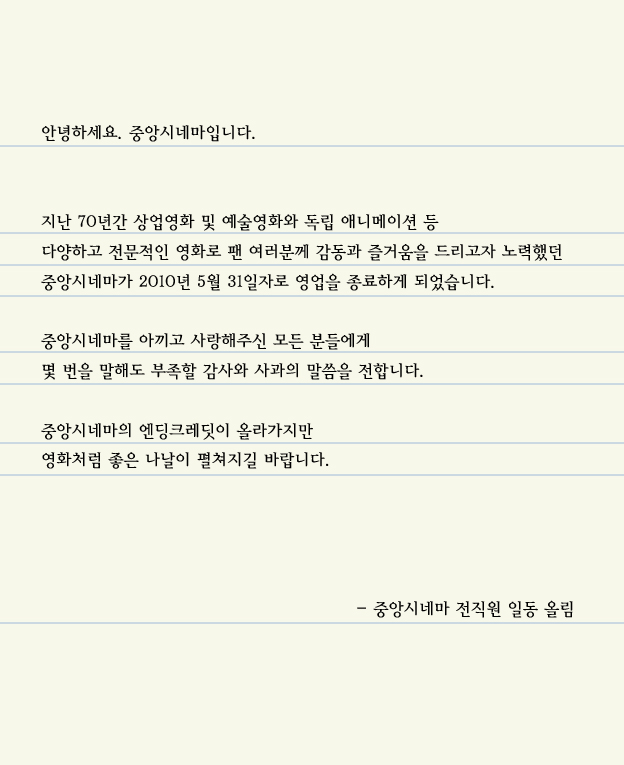 안녕하세요. 중앙시네마입니다.
지난 70년간 상업영화 및 예술영화와 독립 애니메이션 등
다양하고 전문적인 영화로 팬 여러분께 감동과 즐거움을 드리고자 노력했던
중앙시네마가 2010년 5월 31일자로 영업을 종료하게 되었습니다.
중앙시네마를 아끼고 사랑해주신 모든 분들에게
몇 번을 말해도 부족할 감사와 사과의 말씀을 전합니다.
중앙시네마의 엔딩크레딧이 올라가지만
영화처럼 좋은 나날이 펼쳐지길 바랍니다.
– 중앙시네마 전직원 일동 올림